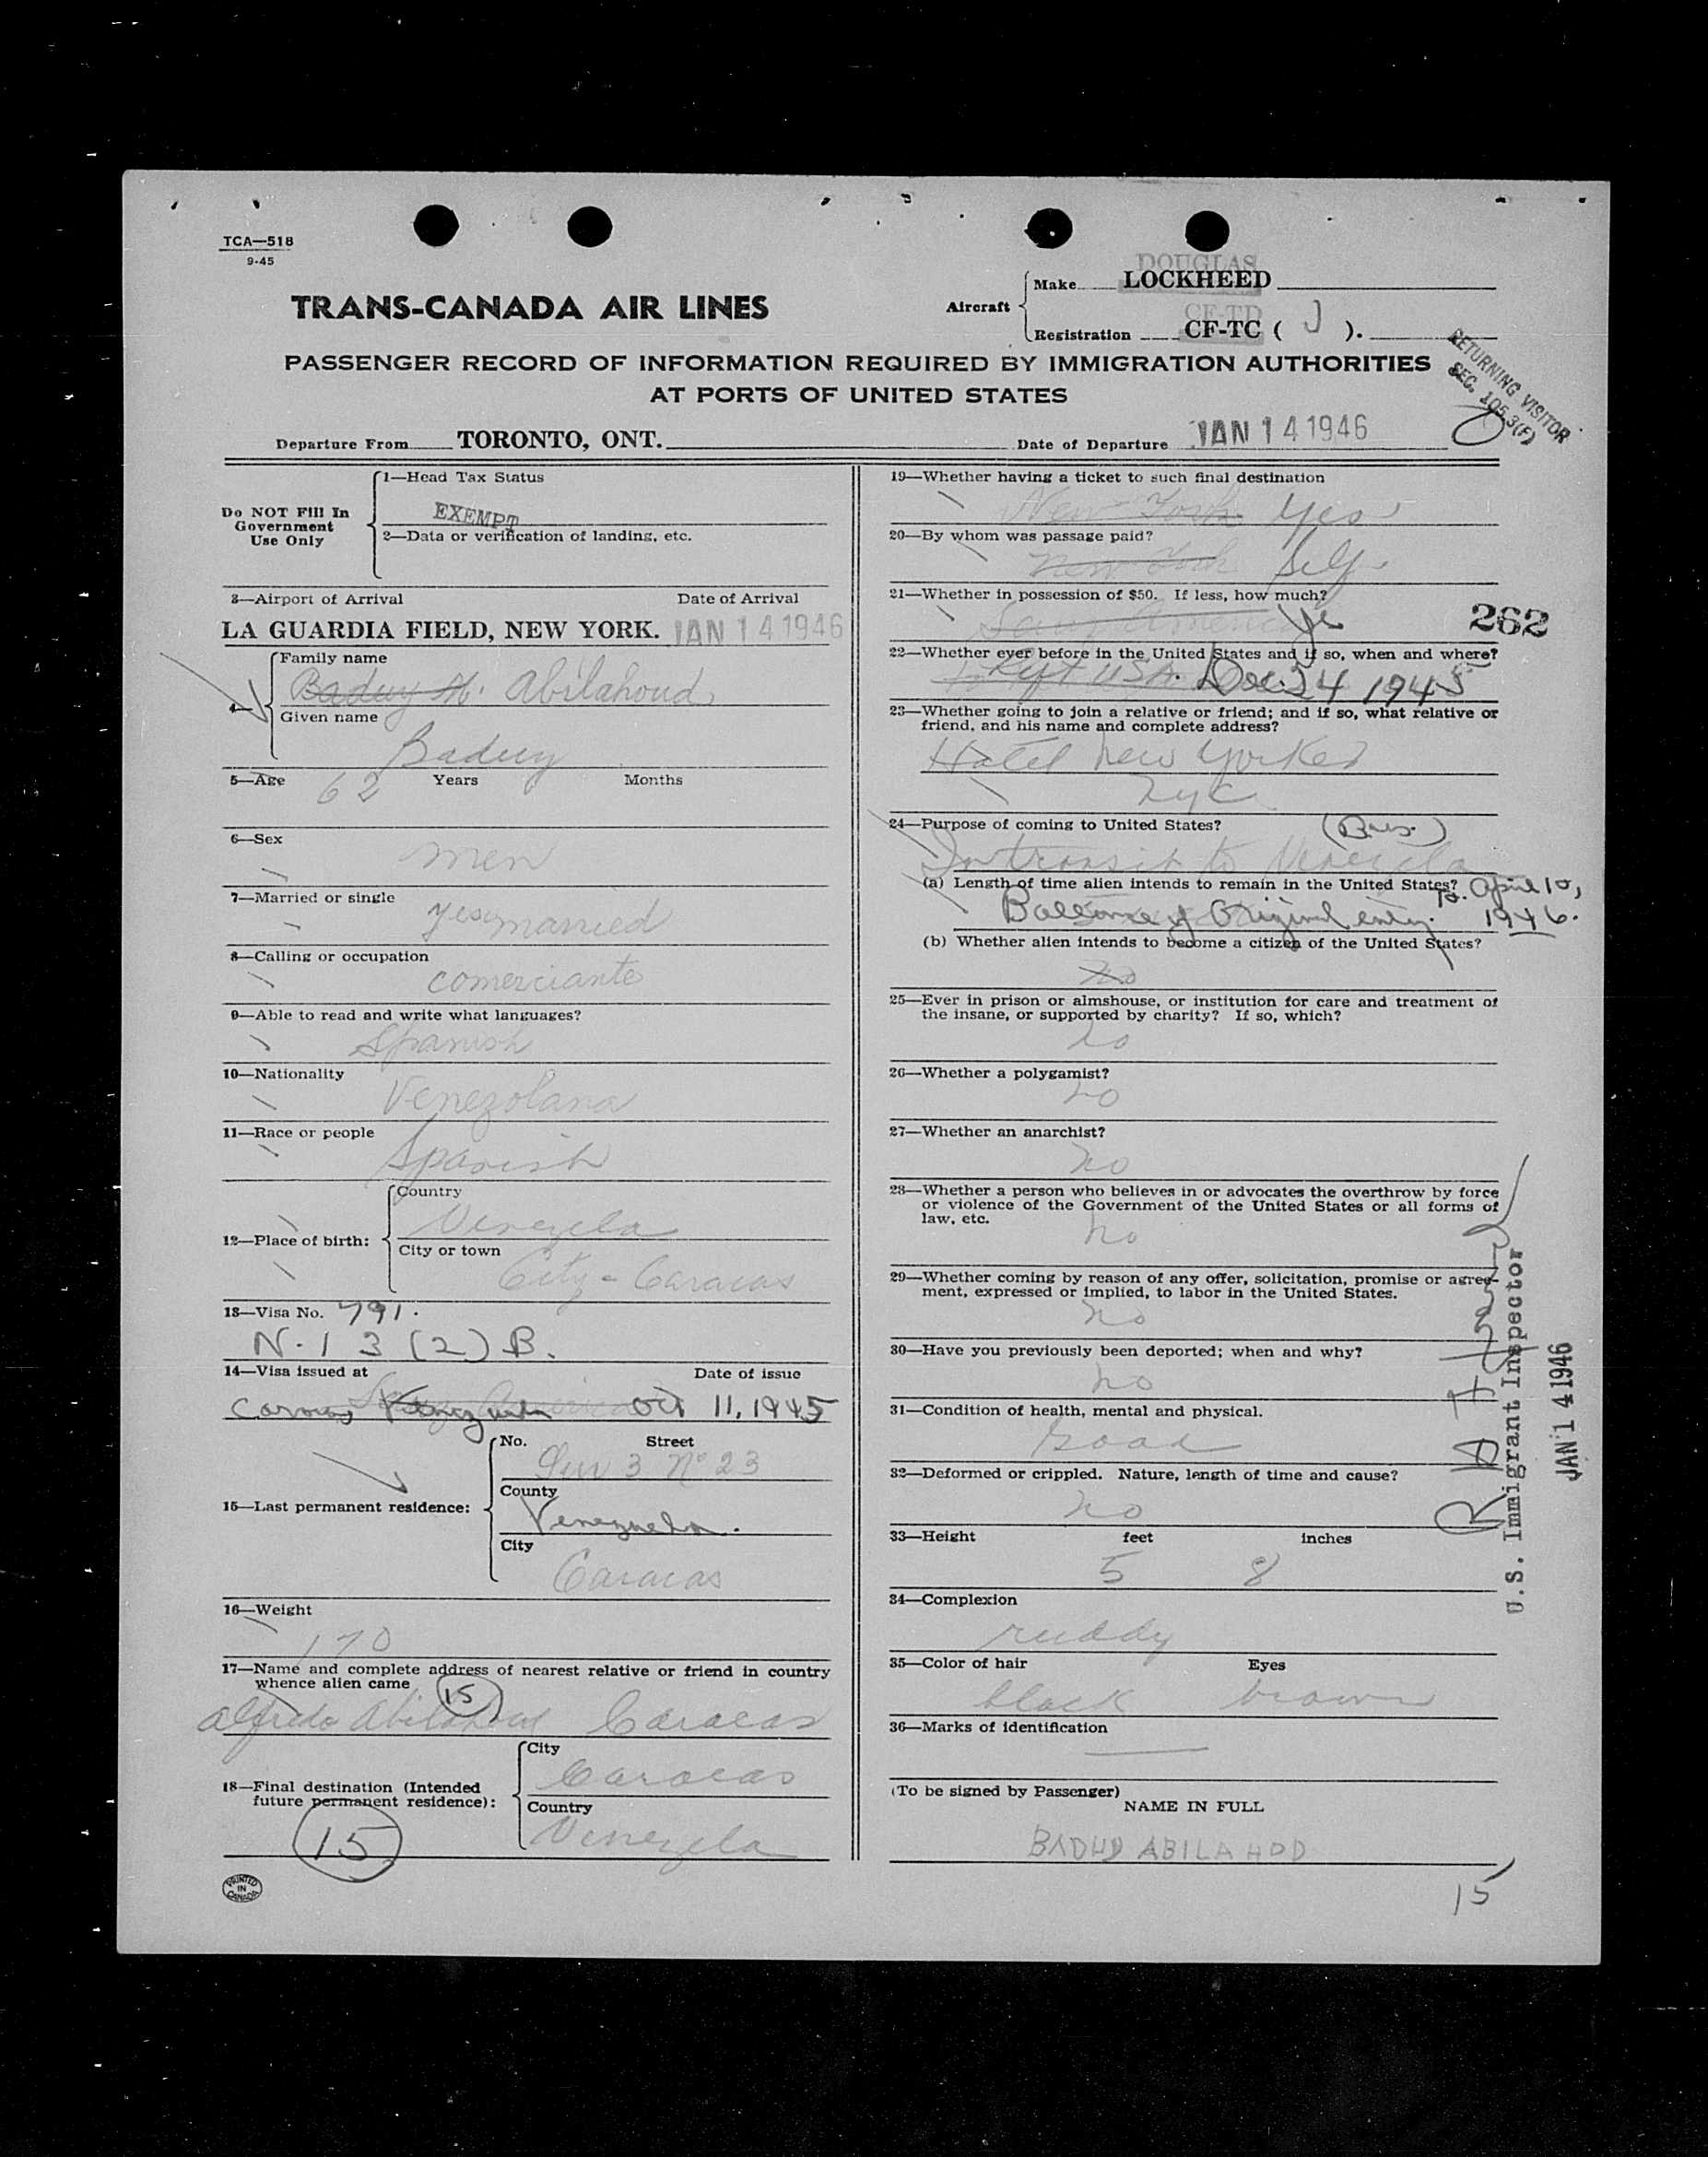 TCA—518
9-45
TRANS-CANADA AIR LINES
DOUGLAS
Aircraft
Make LOCKHEED
CF-TD
Registration CF-TC ( J ).
PASSENGER RECORD OF INFORMATION REQUIRED BY IMMIGRATION AUTHORITIES
AT PORTS OF UNITED STATES
RETURNING VISITOR
SEC. 105.3(F)
Departure From TORONTO, ONT. Date of Departure JAN 14 1946
Do NOT Fill In
Government
Use Only
1—Head Tax Status
EXEMPT
2—Data or verification of landing, etc.
3—Airport of Arrival Date of Arrival
LA GUARDIA FIELD, NEW YORK. JAN 14 1946
Family name
Baduy A. Abilahoud
Given name
Baduy
5—Age 62 Years Months
6—Sex
men
7—Married or single
yes married
8—Calling or occupation
comerciante
9—Able to read and write what languages?
Spanish
10—Nationality
Venezolana
11—Race or people
Spanish
12—Place of birth:
Country
Venezela
City or town
City - Caracas
13—Visa No. 791.
N.I 3 (2) B.
14—Visa issued at Date of issue
Venezuela Oct 11, 1945
15—Last permanent residence:
No. Street
3 Nº 23
County
Venezuela.
City
Caracas
16—Weight
170
17—Name and complete address of nearest relative or friend in country
whence alien came
15
Alfredo Abilahoud Caracas
18—Final destination (Intended
future permanent residence):
City
Caracas
Country
Venezela
15
PRINTED
IN
CANADA
19—Whether having a ticket to such final destination
New York Yes
20—By whom was passage paid?
New York Self
21—Whether in possession of $50. If less, how much?
Yes
262
22—Whether ever before in the United States and if so, when and where?
Left USA. Dec. 24 1945
23—Whether going to join a relative or friend; and if so, what relative or
friend, and his name and complete address?
Hotel New Yorker
NYC
24—Purpose of coming to United States? (Bus.)
In transit to Venezela
(a) Length of time alien intends to remain in the United States? To. April 10,
Ballance of Original entry. 1946.
(b) Whether alien intends to become a citizen of the United States?
no
25—Ever in prison or almshouse, or institution for care and treatment of
the insane, or supported by charity? If so, which?
no
26—Whether a polygamist?
no
27—Whether an anarchist?
no
28—Whether a person who believes in or advocates the overthrow by force
or violence of the Government of the United States or all forms of
law, etc.
no
29—Whether coming by reason of any offer, solicitation, promise or agree-
ment, expressed or implied, to labor in the United States.
no
30—Have you previously been deported; when and why?
no
31—Condition of health, mental and physical.
good
32—Deformed or crippled. Nature, length of time and cause?
no
33—Height feet inches
5 8
34—Complexion
ruddy
35—Color of hair Eyes
black brown
36—Marks of identification
(To be signed by Passenger)
NAME IN FULL
BADUD ABILAHOD
15
U.S. Immigrant Inspector
JAN 14 1946